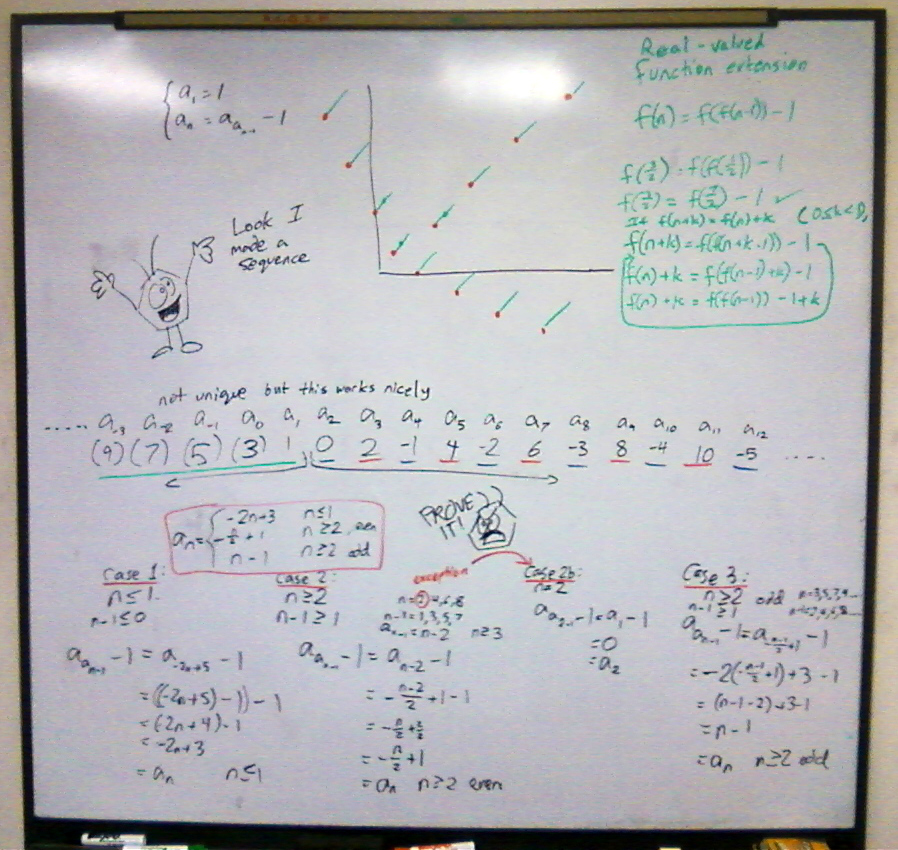 a₁ = 1
aₙ = a_{aₙ₋₁} - 1
Look I
made a
sequence
Real-valued
function extension
f(n) = f(f(n-1)) - 1
f(3/2) = f(f(1/2)) - 1
If f(n+k) = f(n)+k (0≤k<1)
f(n+k) = f(f(n+k-1)) - 1
f(n)+k = f(f(n-1)+k) - 1
f(n)+k = f(f(n-1)) - 1+k
not unique but this works nicely
..... a₋₃ a₋₂ a₋₁ a₀ a₁ a₂ a₃ a₄ a₅ a₆ a₇ a₈ a₉ a₁₀ a₁₁ a₁₂
(9) (7) (5) (3) 1 0 2 -1 4 -2 6 -3 8 -4 10 -5 ....
aₙ = { -2n+3 n≤1
-n/2 + 1 n≥2, even
n-1 n≥2 odd
PROVE
IT!
Case 1:
n≤1
n-1≤0
a_{aₙ₋₁} - 1 = a₋₂ₙ₊₅ - 1
= ((-2n+5)-1)) - 1
= (2n+4)-1
= -2n+3
= aₙ n≤1
Case 2:
n≥2
n-1≥1
exception
n=2,4,6,8
n-1=1,3,5,7
aₙ₋₁=n-2 n≥3
a_{aₙ₋₁} - 1 = aₙ₋₂ - 1
= -(n-2)/2 + 1 - 1
= -n/2 + 2/2
= -n/2 + 1
= aₙ n≥2 even
Case 2b:
n=2
a_{a₂₋₁} - 1 = a₁ - 1
= 0
= a₂
Case 3:
n≥2 odd n=3,5,7,9...
n-1≥1
a_{aₙ₋₁} - 1 = a_{-(n-1)/2+1} - 1
= -2(-(n-1)/2+1)+3 - 1
= (n-1-2)+3-1
= n-1
= aₙ n≥2 odd